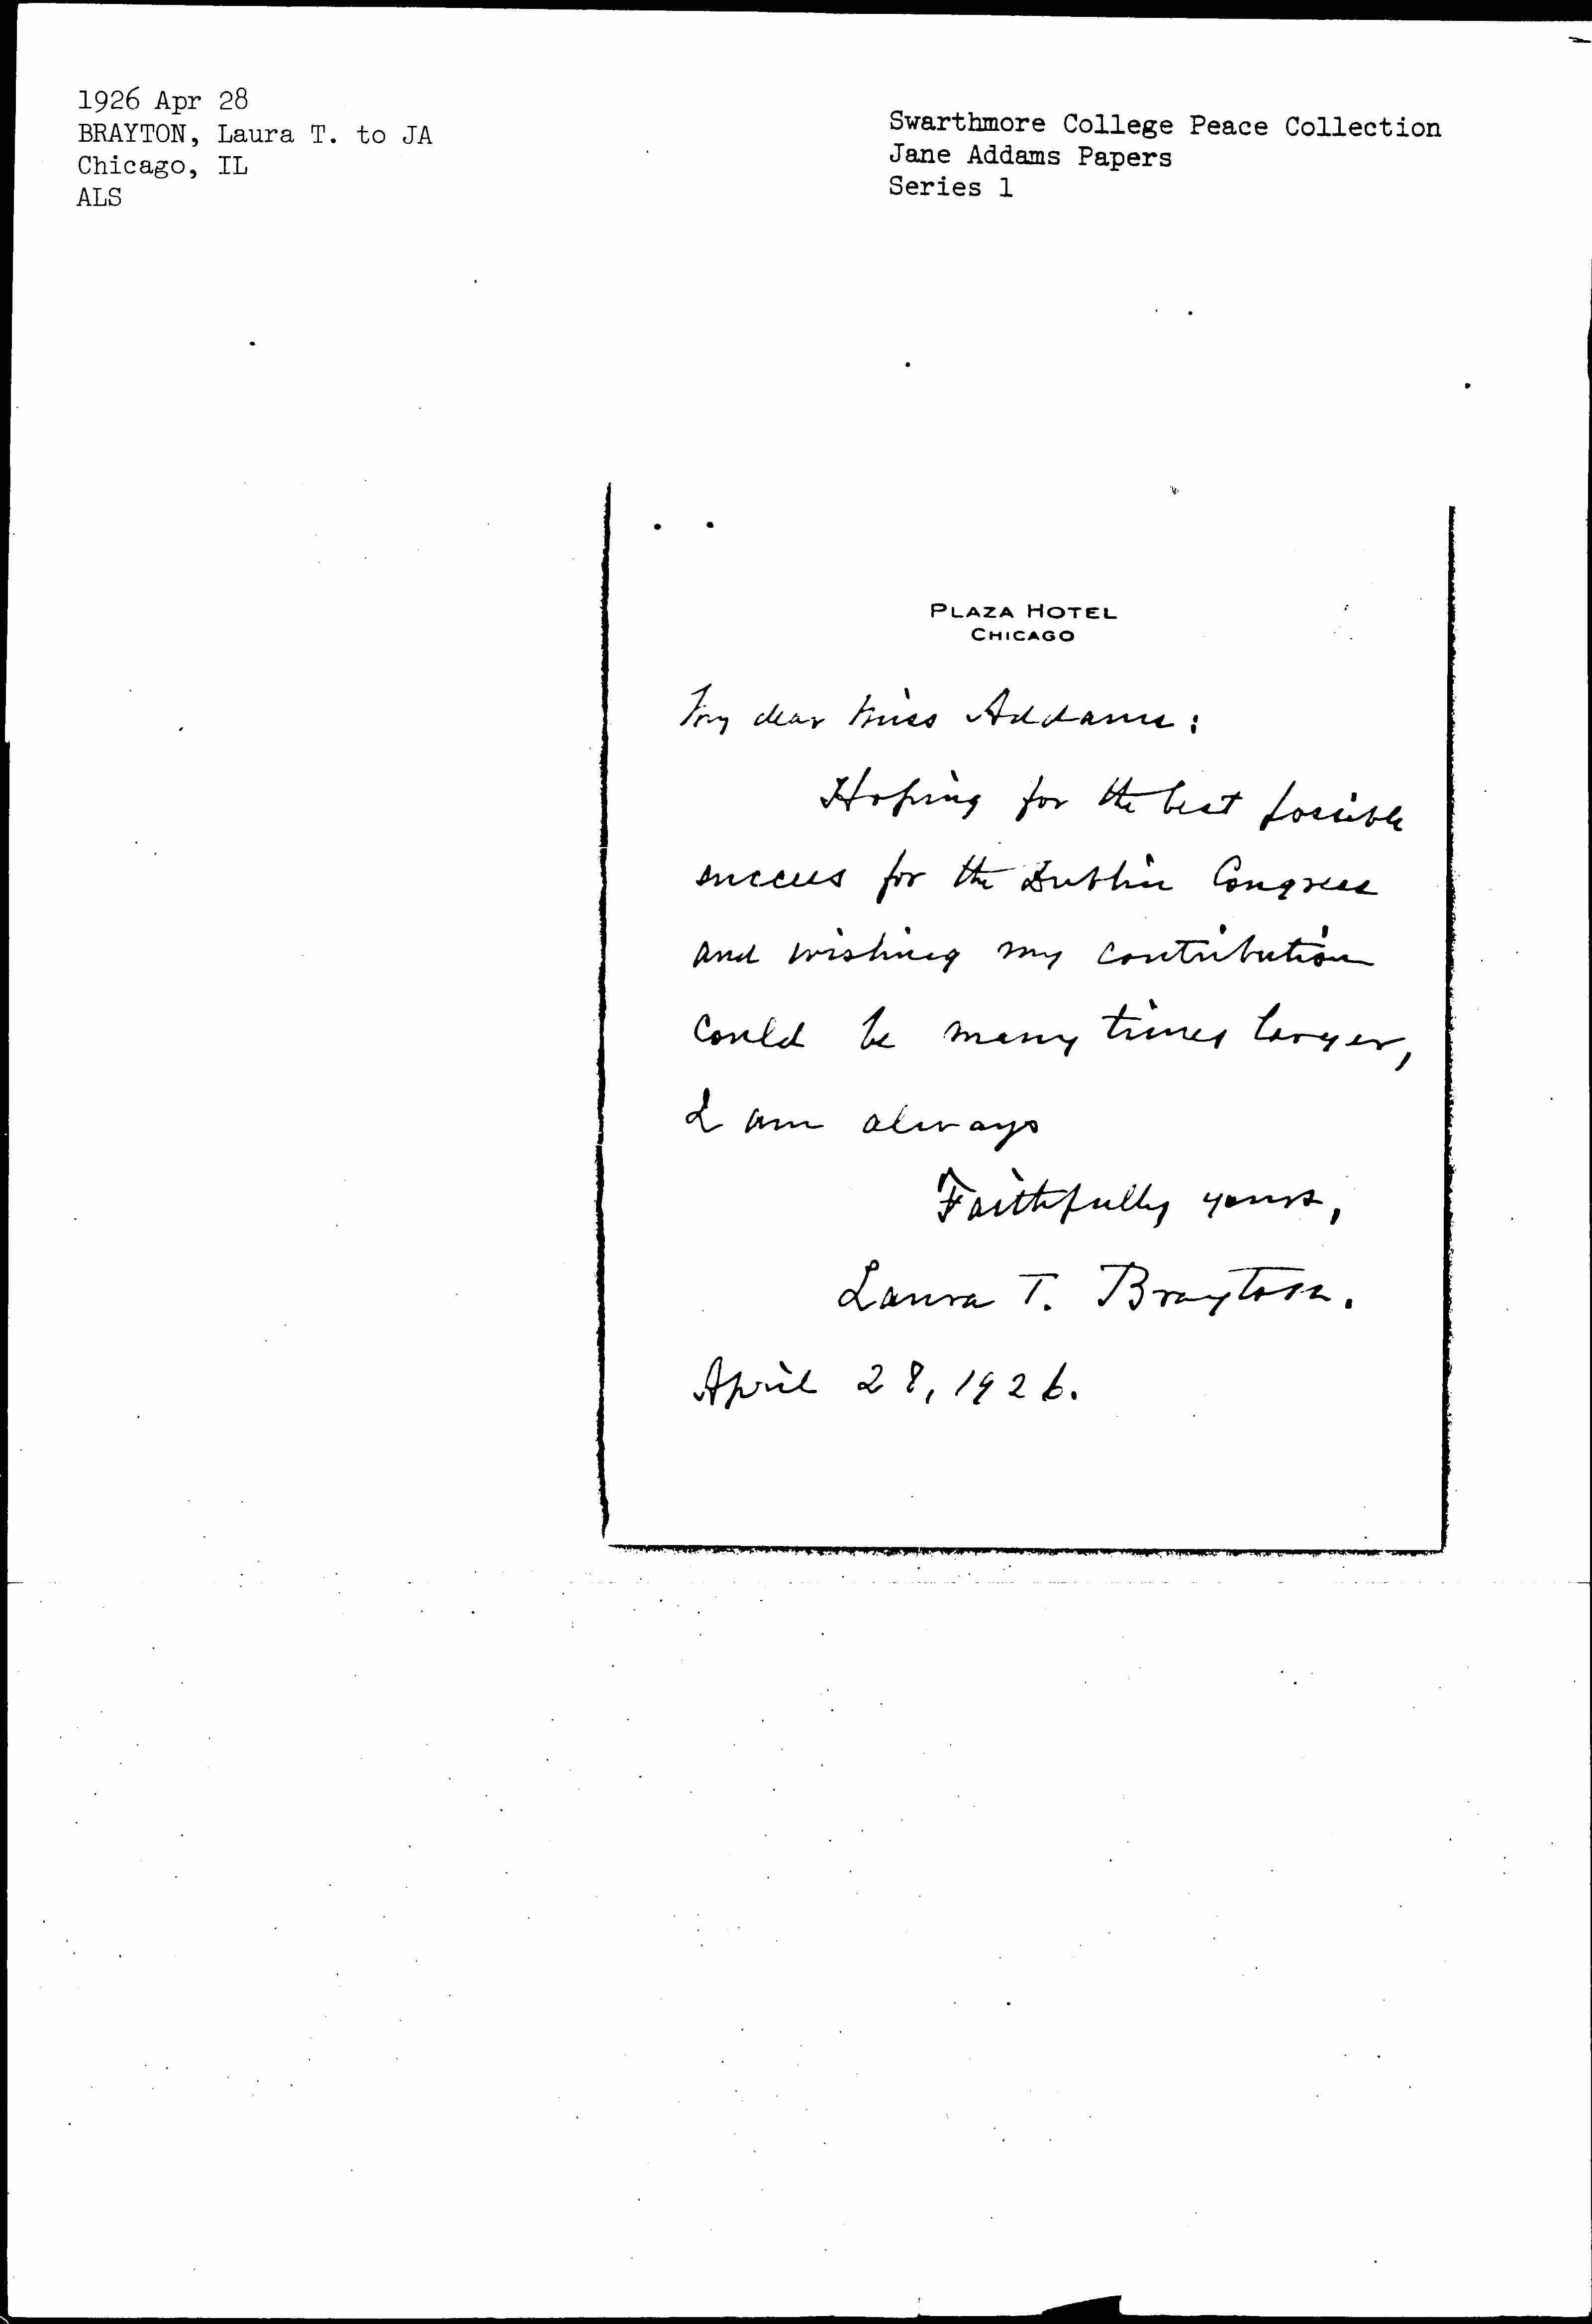 1926 Apr 28
BRAYTON, Laura T. to JA
Chicago, IL
ALS
Swarthmore College Peace Collection
Jane Addams Papers
Series 1
PLAZA HOTEL
CHICAGO
My dear Miss Addams:
Hoping for the best possible
success for the Dublin Congress
and wishing my contribution
could be many times larger,
I am always
Faithfully yours,
Laura T. Brayton.
April 28, 1926.